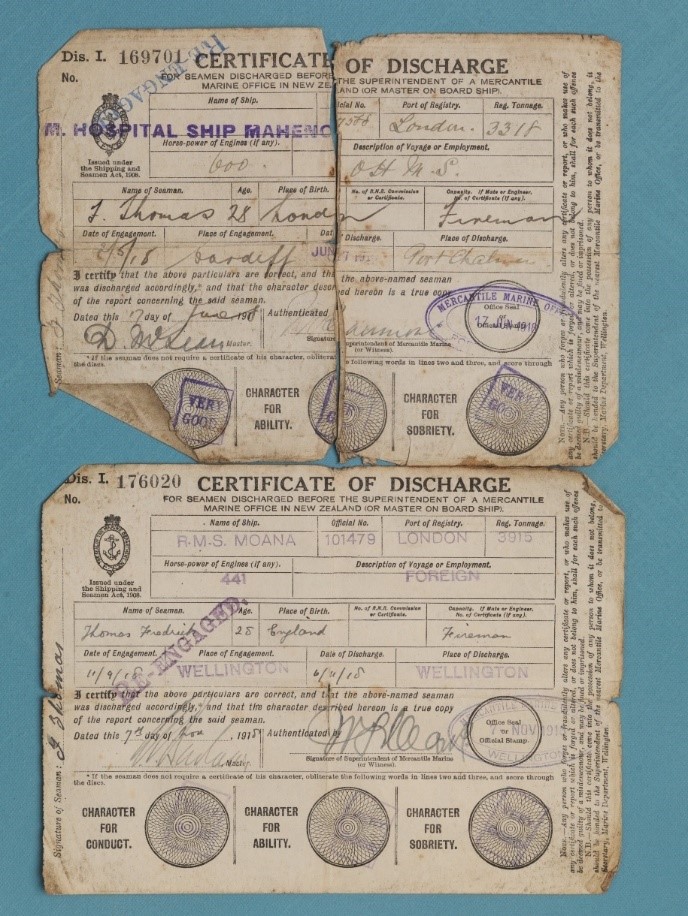 Dis. I. 169701 CERTIFICATE OF DISCHARGE
No. FOR SEAMEN DISCHARGED BEFORE THE SUPERINTENDENT OF A MERCANTILE
MARINE OFFICE IN NEW ZEALAND (OR MASTER ON BOARD SHIP).
RE-ENGAG
Name of Ship. cial No. Port of Registry. Reg. Tonnage.
M. HOSPITAL SHIP MAHENO London. 3318
Horse-power of Engines (if any). Description of Voyage or Employment.
600. O H M S.
Issued under
the Shipping and
Seamen Act, 1908.
Name of Seaman. Age. Place of Birth. No. of R.N.R. Commission
or Certificate. Capacity. If Mate or Engineer,
No. of Certificate (if any).
F. Thomas 28 London Fireman
Date of Engagement. Place of Engagement. Dat Discharge. Place of Discharge.
Cardiff JUN Port Chalmers
I certify that the above particulars are correct, and tha the above-named seaman
was discharged accordingly,* and that the character descr ibed hereon is a true copy
of the report concerning the said seaman.
Dated this 17 day of June 1918 Authenticated
D. McLean Master. Signature Superintendent of Mercantile Marine
(or Witness).
MERCANTILE MARINE OFF
17 JUN 1918
Official Stamp.
* If the seaman does not require a certificate of his character, obliterate the following words in lines two and three, and score through
the discs.
VERY GOOD CHARACTER
FOR
ABILITY. VERY CHARACTER
FOR
SOBRIETY. VERY GOOD
NOTE.—Any person who forges or fraudulently alters any certificate or report, or who makes use of
any certificate or report which is forged or altered, or does not belong to him, shall for each such offence
be deemed guilty of a misdemeanour, and may be fined or imprisoned.
N.B.—Should this certificate come into the possession of any person to whom it does not belong, it
should be handed to the Superintendent of the nearest Mercantile Marine Office, or be transmitted to the
Secretary, Marine Department, Wellington.
Dis. I. 176020 CERTIFICATE OF DISCHARGE
No. FOR SEAMEN DISCHARGED BEFORE THE SUPERINTENDENT OF A MERCANTILE
MARINE OFFICE IN NEW ZEALAND (OR MASTER ON BOARD SHIP).
Name of Ship. Official No. Port of Registry. Reg. Tonnage.
R.M.S. MOANA 101479 LONDON 3915
Horse-power of Engines (if any). Description of Voyage or Employment.
441 FOREIGN
Issued under
the Shipping and
Seamen Act, 1908.
Name of Seaman. Age. Place of Birth. No. of R.N.R. Commission
or Certificate. Capacity. If Mate or Engineer,
No. of Certificate (if any).
Thomas Fredrick 28 England Fireman
RE-ENGAGED.
Date of Engagement. Place of Engagement. Date of Discharge. Place of Discharge.
11/9/18 WELLINGTON 6/11/18 WELLINGTON
I certify that the above particulars are correct, and that the above-named seaman
was discharged accordingly,* and that the character described hereon is a true copy
of the report concerning the said seaman.
Dated this 7th day of Nov, 1918 Authenticated by
Master. Signature of Superintendent of Mercantile Marine
(or Witness).
MARINE
Office Seal
or
Official Stamp.
NOV
WELLINGTON
* If the seaman does not require a certificate of his character, obliterate the following words in lines two and three, and score through
the discs.
CHARACTER
FOR
CONDUCT. CHARACTER
FOR
ABILITY. CHARACTER
FOR
SOBRIETY.
Signature of Seaman: F Thomas
NOTE.—Any person who forges or fraudulently alters any certificate or report, or who makes use of
any certificate or report which is forged or altered, or does not belong to him, shall for each such offence
be deemed guilty of a misdemeanour, and may be fined or imprisoned.
N.B.—Should this certificate come into the possession of any person to whom it does not belong,
should be handed to the Superintendent of the nearest Mercantile Marine Office, or be transmitted to
Secretary, Marine Department, Wellington.